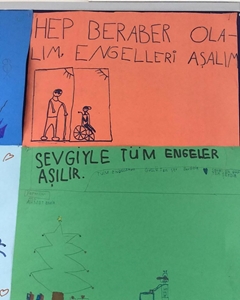 HEP BERABER OLA-
LIM, ENGELLERİ AŞALIM
SEVGİYLE TÜM ENGELER
AŞILIR.